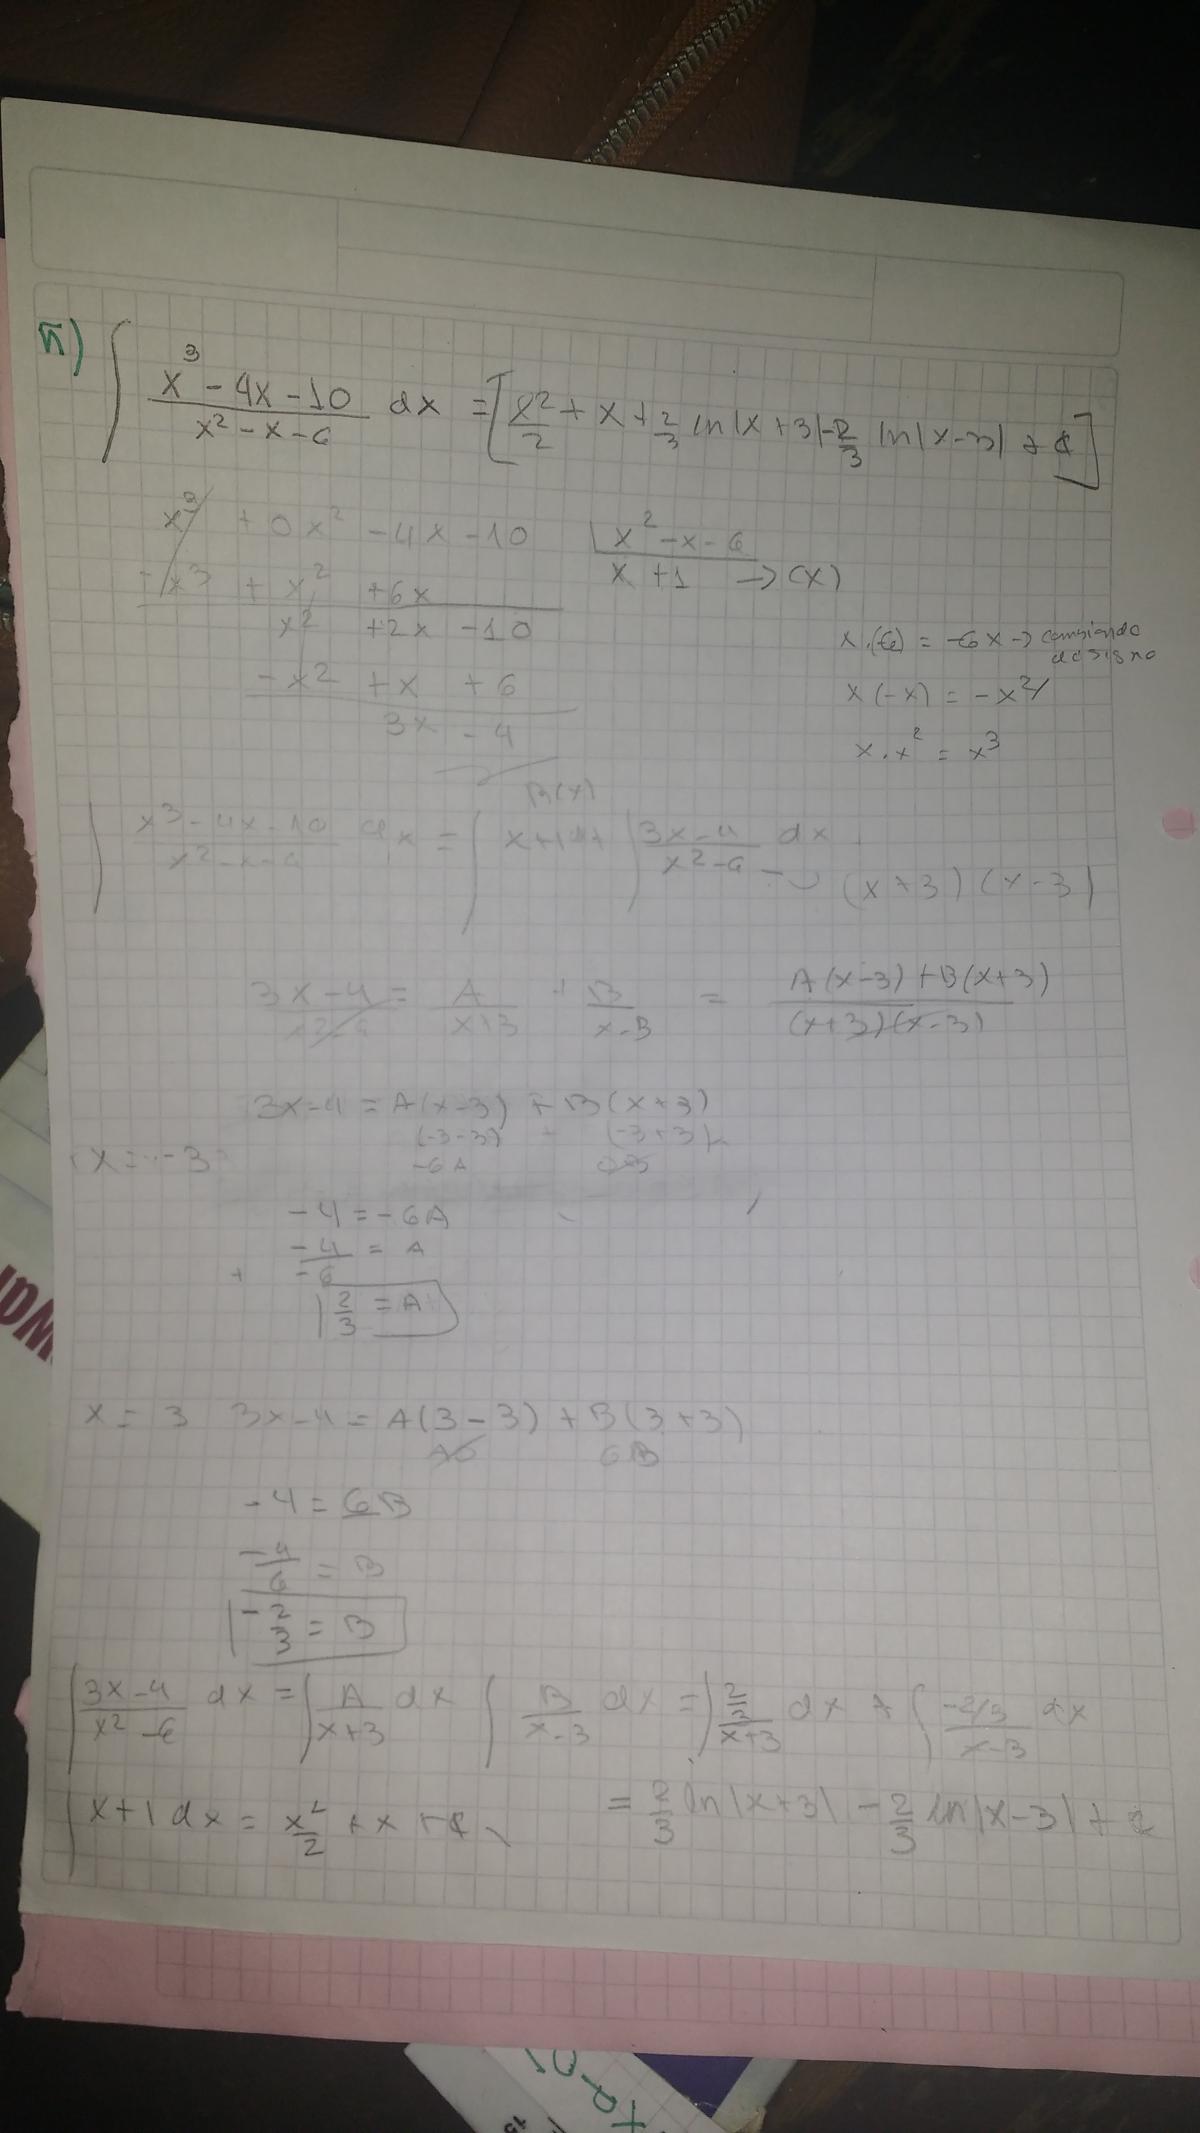 ñ) ∫ (x³ - 4x - 10)/(x² - x - 6) dx = [x²/2 + x + 2/3 ln|x+3| - 2/3 ln|x-3| + c]
x³ + 0x² - 4x - 10 |x² - x - 6
-x³ + x² + 6x x + 1 → (x)
x² + 2x - 10
x·(-6) = -6x → cambiando de signo
-x² + x + 6
x(-x) = -x²
3x - 4
x·x² = x³
R(x)
∫ (x³ - 4x - 10)/(x² - x - 6) dx = ∫ x + 1 + ∫ (3x - 4)/(x² - 6) dx
(x+3)(x-3)
(3x-4)/ = A/(x+3) + B/(x-3) = (A(x-3) + B(x+3))/((x+3)(x-3))
3x-4 = A(x-3) + B(x+3)
(-3-3) + (-3+3)
x = -3 -6A 0B
-4 = -6A
-4/-6 = A
2/3 = A
x = 3 3x-4 = A(3-3) + B(3+3)
A0 6B
-4 = 6B
-4/6 = B
-2/3 = B
∫ (3x-4)/(x²-6) dx = ∫ A/(x+3) dx ∫ B/(x-3) dx = ∫ (2/3)/(x+3) dx + ∫ (-2/3)/(x-3) dx
∫ x+1 dx = x²/2 + x + c = 2/3 ln|x+3| - 2/3 ln|x-3| + c